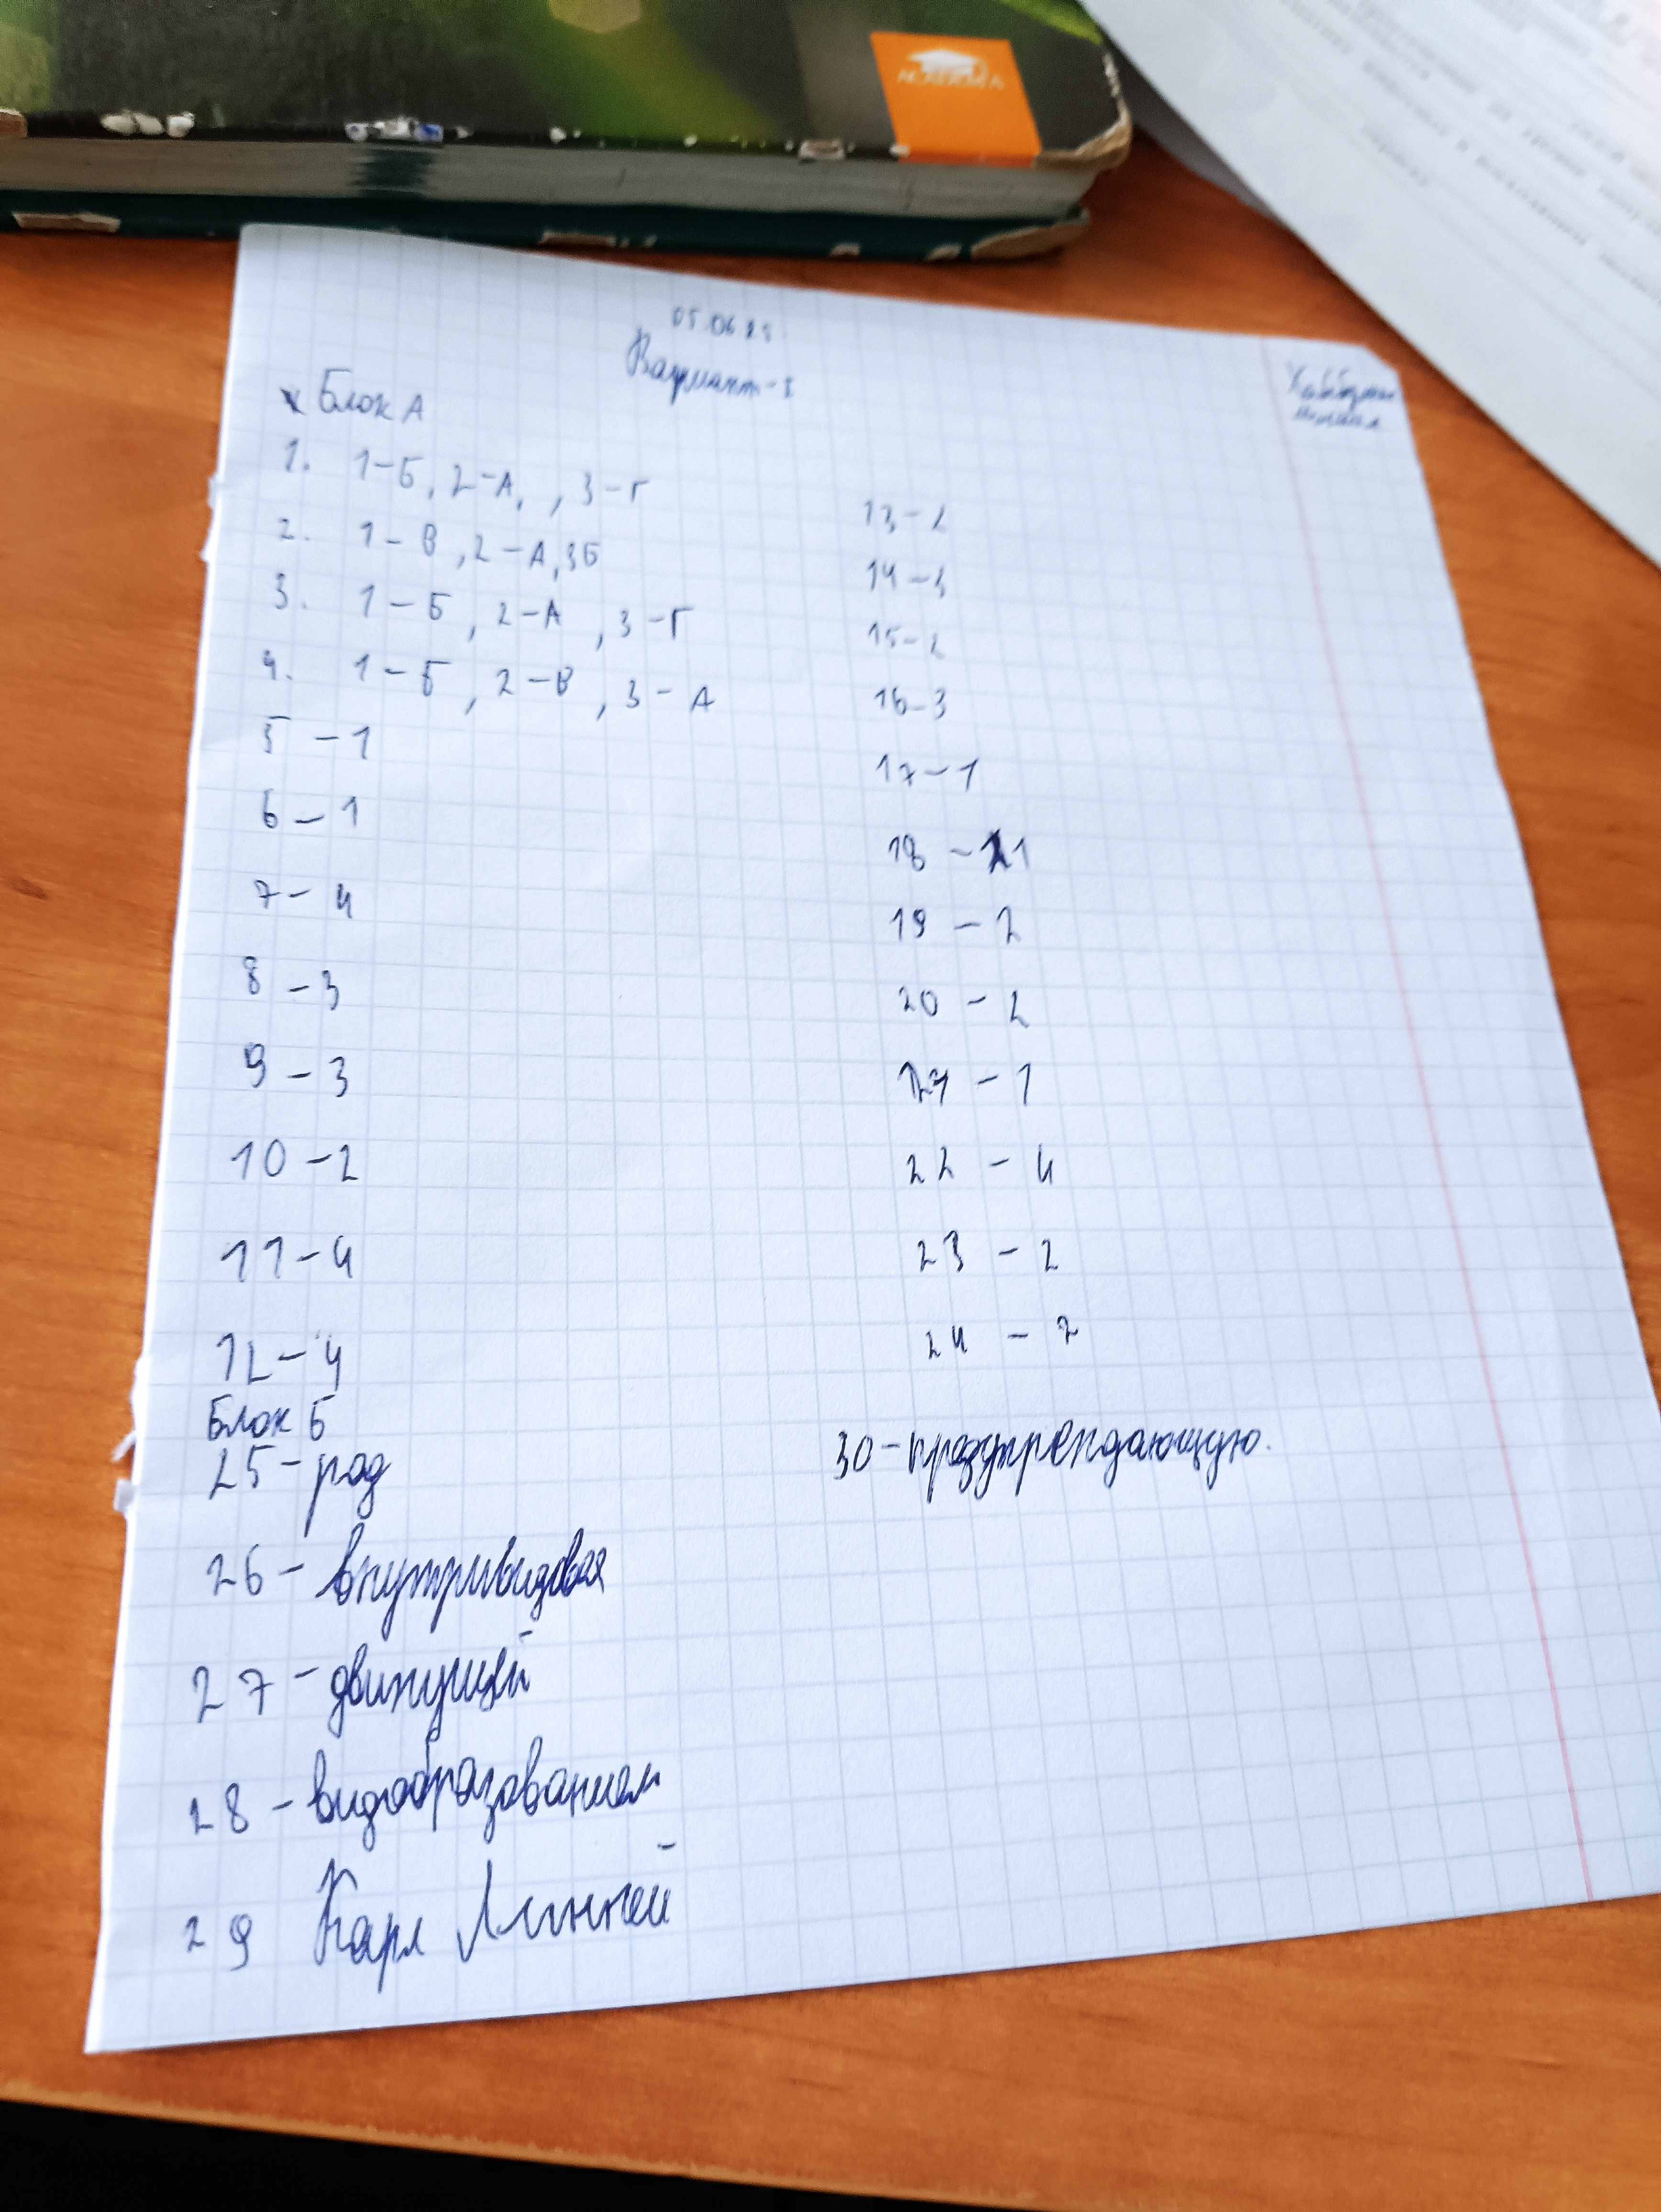 ACADEMIA
05.06.25.
Вариант-1
Блок А
1. 1-Б, 2-А, , 3-Г
2. 1-В, 2-А, 3Б
3. 1-Б, 2-А, 3-Г
4. 1-Б, 2-В, 3-А
5-1
6-1
7-4
8-3
9-3
10-2
11-4
12-4
13-2
14-3
15-2
16-3
17-1
18-1
19-2
20-2
21-1
22-4
23-2
24-2
Блок Б
25-род
26-внутривидовая
27-движущей
28-видообразованием
29 Карл Линней
30-